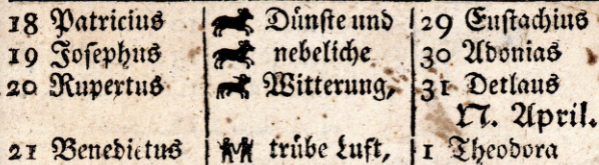 18 Patricius Dünste und 29 Eustachius
19 Josephus nebeliche 30 Adonias
20 Rupertus Witterung, 31 Detlaus
N. April.
21 Benedictus trübe Luft, 1 Theodora